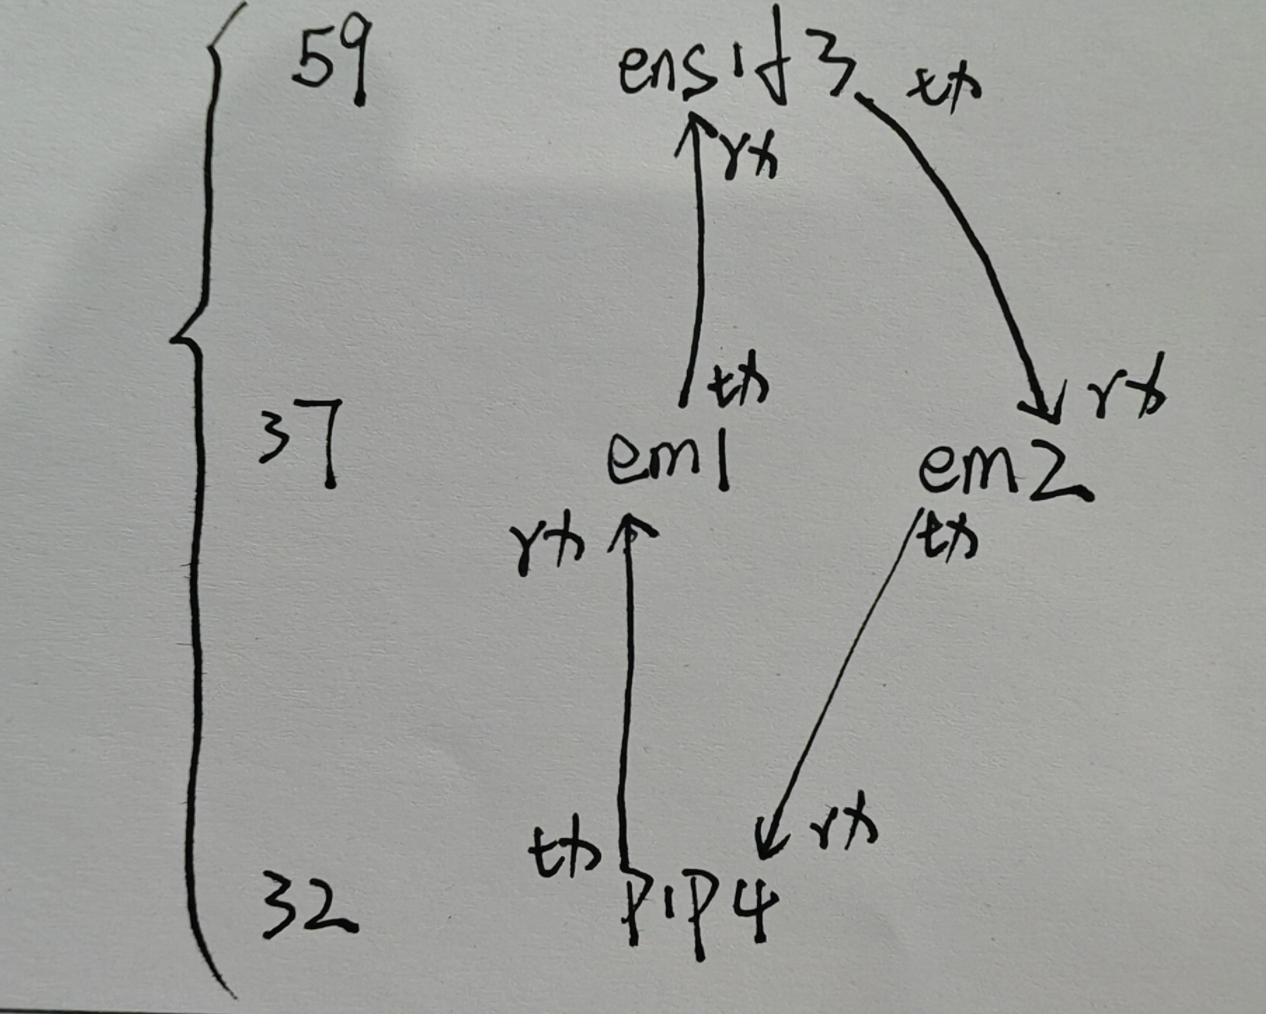 59 ens1f3 tx
rx
tx rx
37 em1 em2
rx tx
tx rx
32 P1P4